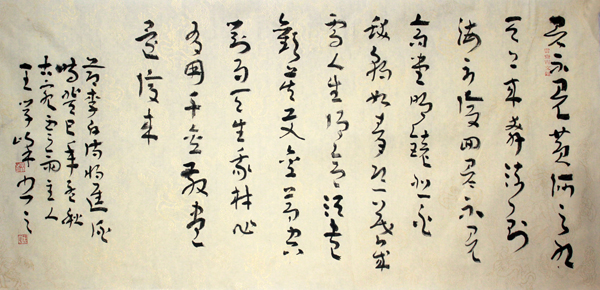 君不見黄河之水
天上來奔流到
海不復回君不見
高堂明鏡悲白
髮朝如青絲暮成
雪人生得意須盡
歡莫使金尊空
對月天生我材必
有用千金散盡
還復來
節李白詩將進酒
時癸巳年孟秋
主人
王學